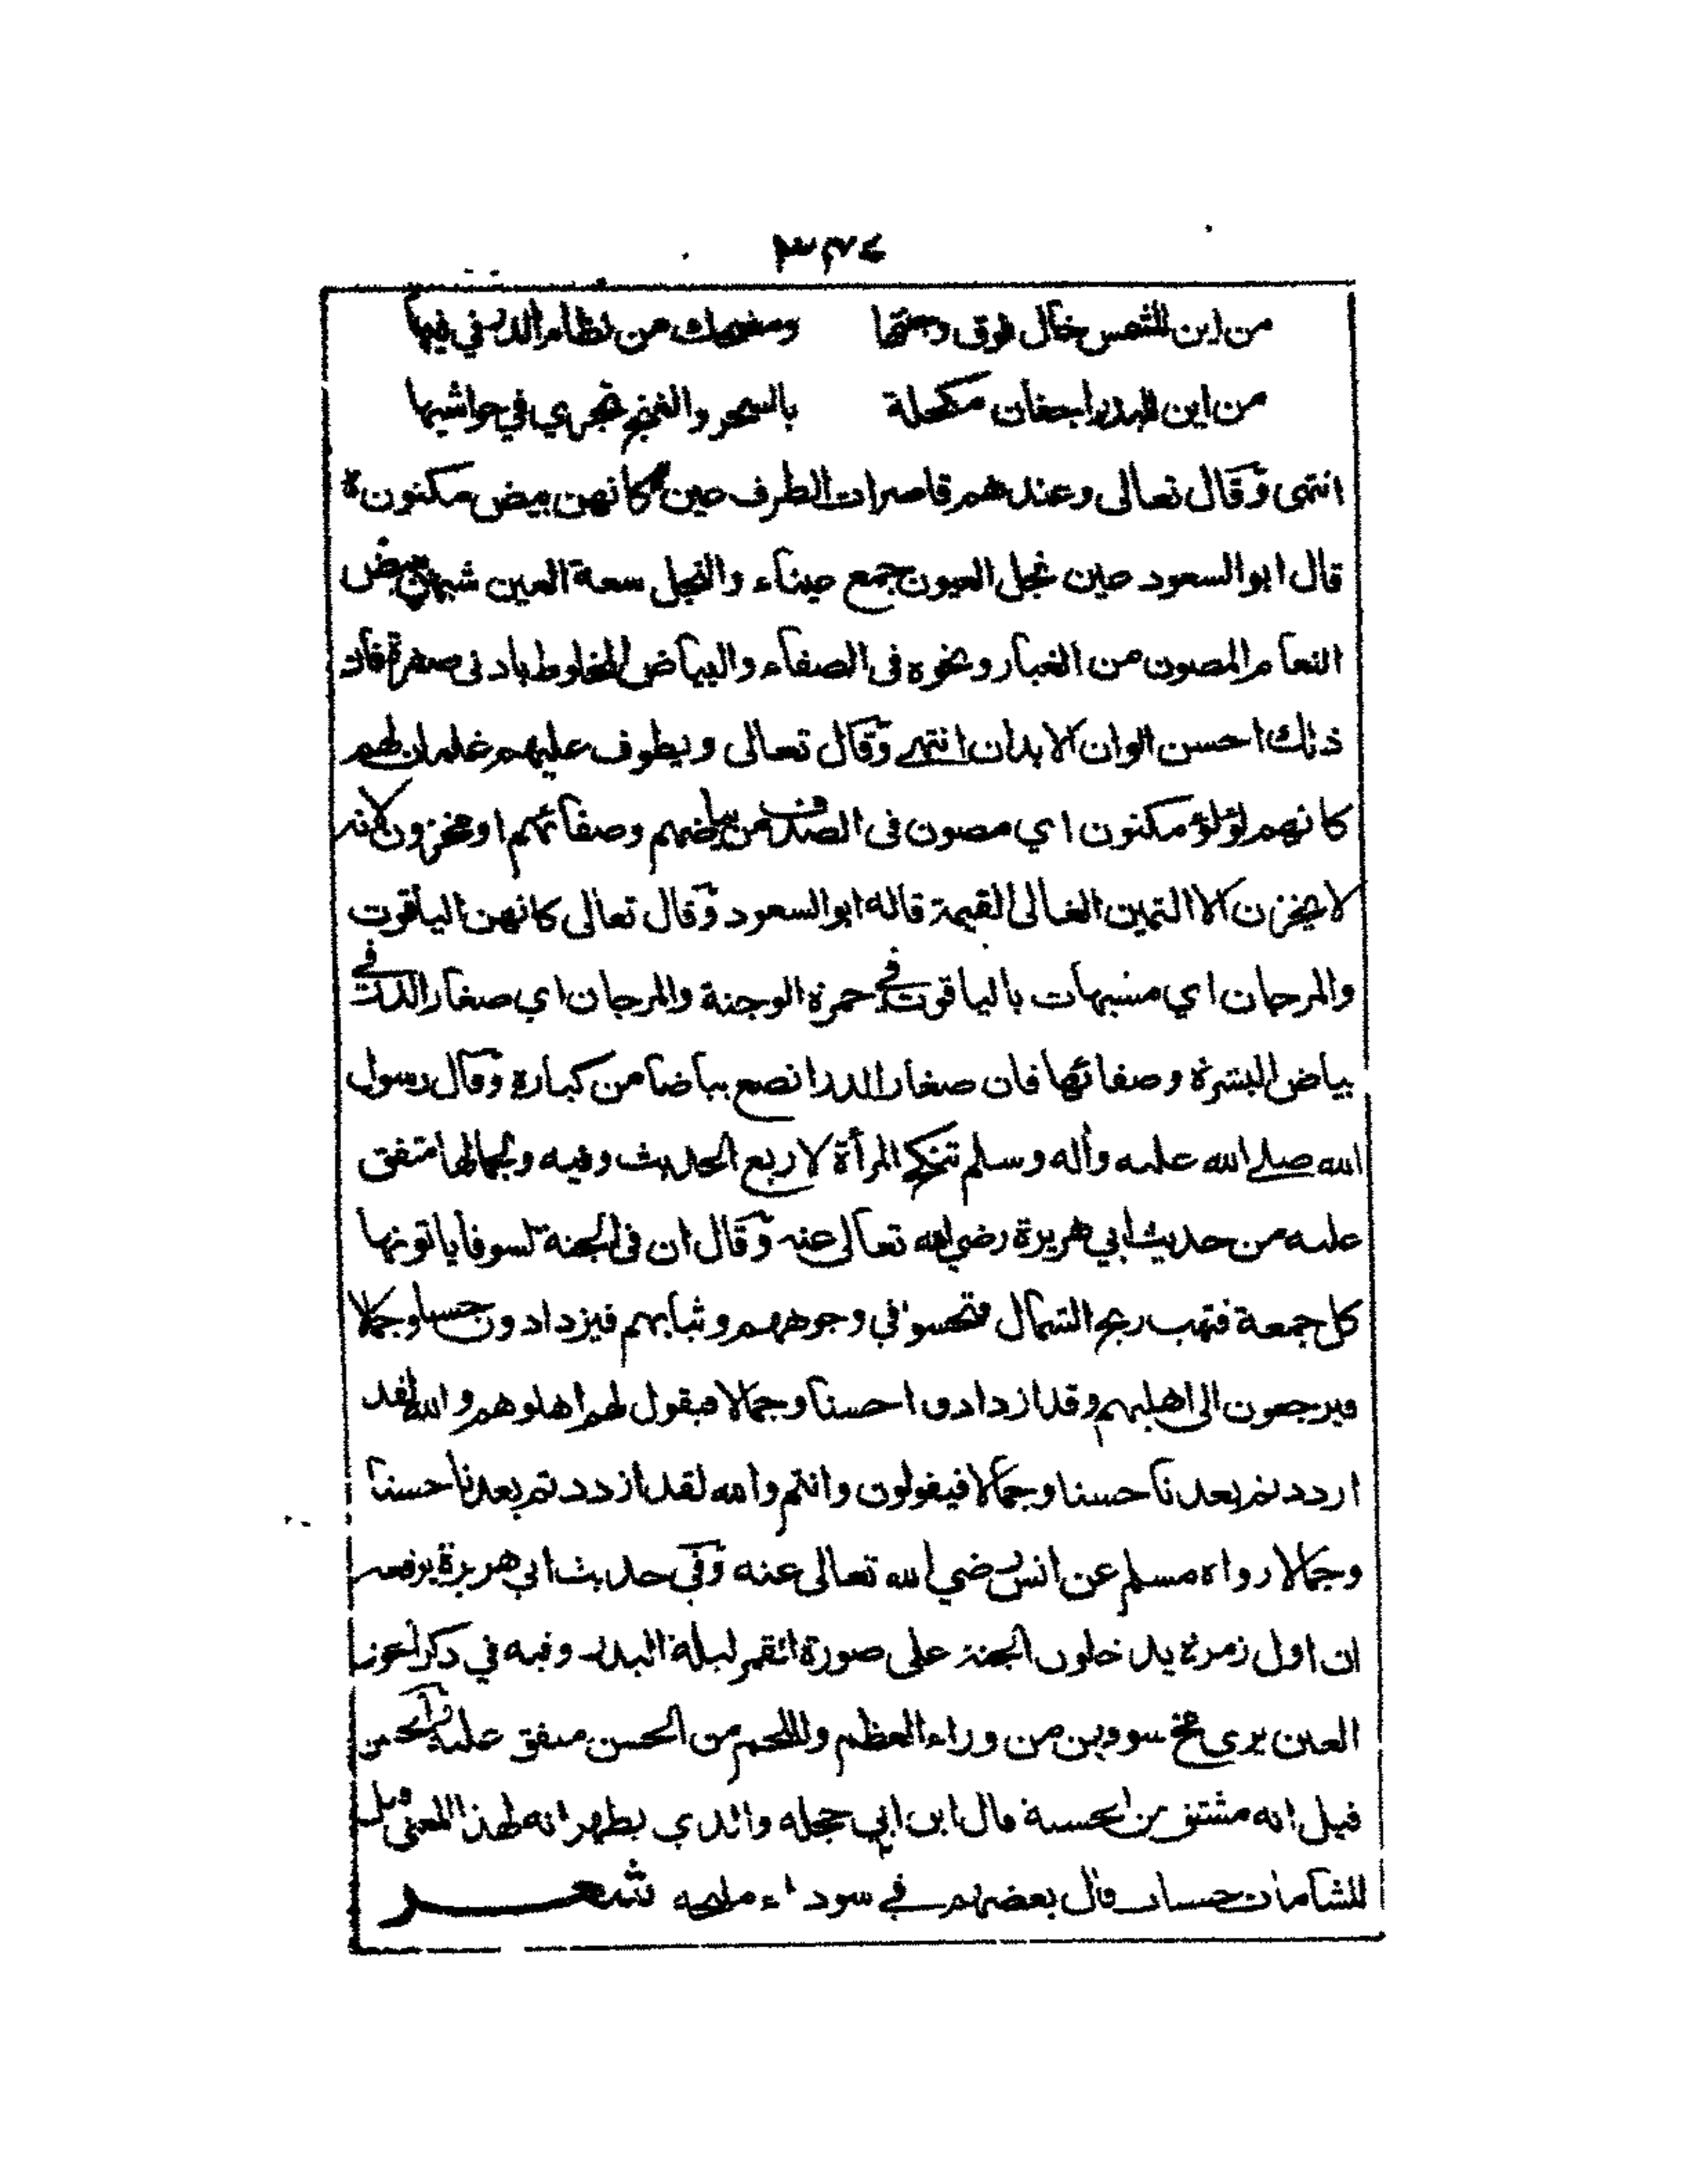 ٣٧٤
من اين للشمس خال فوق وجنتها ومضحك من نظام الدر في فيها
من اين للبدر اجفان مكحلة بالسحر والغنج تجري في حواشيها
انتهى وقال تعالى وعندهم قاصرات الطرف عين كانهن بيض مكنون ة
قال ابو السعود عين نجل العيون جمع عيناء والنجل سعة العين شبهن ببيض
النعام المصون من الغبار ونحوه فى الصفاء والبياض المخلوط بادنى صفرة فان
ذلك احسن الوان الابدان انتهى وقال تعالى ويطوف عليهم غلمان لهم
كانهم لؤلؤ مكنون اي مصون فى الصدف من بياضهم وصفائهم او مخزون لانه
لا يخزن الا الثمين الغالى القيمة قاله ابو السعود وقال تعالى كانهن الياقوت
والمرجان اي مشبهات بالياقوت في حمرة الوجنة والمرجان اي صغار الدر في
بياض البشرة وصفائها فان صغار الدر انصع بياضا من كباره وقال رسول
الله صلى الله عليه وأله وسلم تنكح المرأة لاربع الحديث وفيه ولجمالها متفق
عليه من حديث ابي هريرة رضي الله تعالى عنه وقال ان فى الجنة لسوقا ياتونها
كل جمعة فتهب ريح الشمال فتحسو في وجوههم وثيابهم فيزدادون حسنا وجمالا
فيرجعون الى اهليهم وقد ازدادوا حسنا وجمالا فيقول لهم اهلوهم والله لقد
ازددتم بعدنا حسنا وجمالا فيقولون وانتم والله لقد ازددتم بعدنا حسنا
وجمالا رواه مسلم عن انس رضي الله تعالى عنه وفي حديث ابي هريرة يرفعه
ان اول زمرة يدخلون الجنة على صورة القمر ليلة البدر وفيه في ذكر الحور
العين يرى مخ سوقهن من وراء العظم واللحم من الحسن متفق عليه والحسن
قيل انه مشتق من الحسنة قال ابن ابي حجله والذي يظهر انه لهذا المعنى قيل
للشامات حسنات قال بعضهم في سوداء مليحه شعر